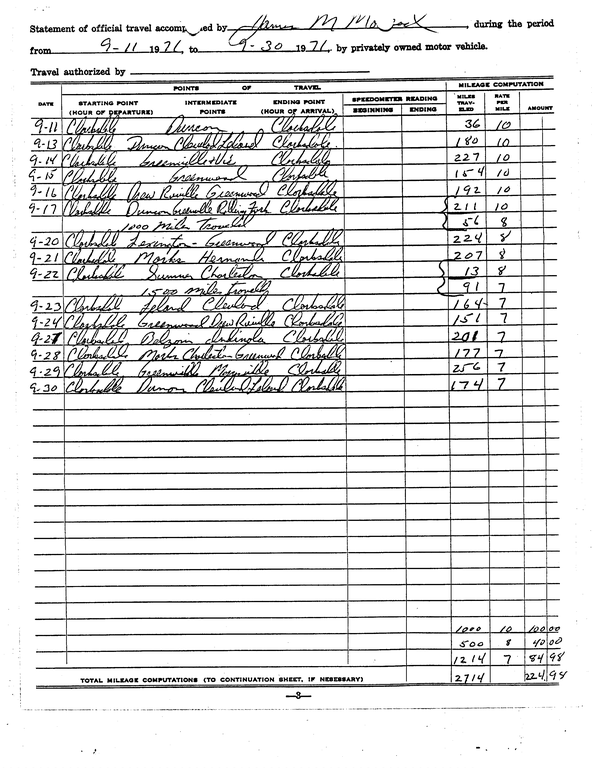 Statement of official travel accomp ed by James M , during the period
from 9-11 1971, to 9-30 1971, by privately owned motor vehicle.
Travel authorized by
POINTS OF TRAVEL MILEAGE COMPUTATION
DATE STARTING POINT (HOUR OF DEPARTURE) INTERMEDIATE POINTS ENDING POINT (HOUR OF ARRIVAL) SPEEDOMETER READING BEGINNING ENDING MILES TRAV- ELED RATE PER MILE AMOUNT
9-11 Clarksdale Duncan Clarksdale 36 10
9-13 Clarksdale Duncan Cleveland Leland Clarksdale 180 10
9-14 Clarksdale Greenville Clarksdale 227 10
9-15 Clarksdale Greenwood Clarksdale 154 10
9-16 Clarksdale Drew Ruleville Greenwood Clarksdale 192 10
9-17 Clarksdale Duncan Greenville Rolling Fork Clarksdale 211 10
1000 miles traveled 56 8
9-20 Clarksdale Lexington - Greenwood Clarksdale 224 8
9-21 Clarksdale Marks Hernando Clarksdale 207 8
9-22 Clarksdale Sumner Charleston Clarksdale 13 8
1500 miles traveled 91 7
9-23 Clarksdale Leland Cleveland Clarksdale 164 7
9-24 Clarksdale Greenwood Drew Ruleville Clarksdale 151 7
9-27 Clarksdale Belzoni Indianola Clarksdale 201 7
9-28 Clarksdale Marks Charleston Greenwood Clarksdale 177 7
9-29 Clarksdale Greenville Clarksdale 256 7
9-30 Clarksdale Duncan Cleveland Leland Clarksdale 174 7
1000 10 100 00
500 8 40 00
1214 7 84 98
TOTAL MILEAGE COMPUTATIONS (TO CONTINUATION SHEET, IF NESESSARY) 2714 224 98
—3—